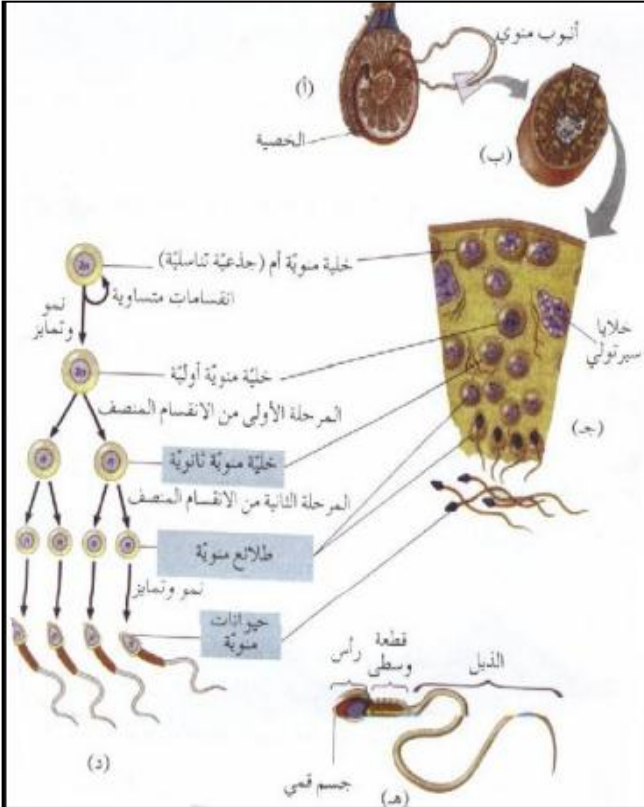 أنبوب منوي
(أ)
الخصية
(ب)
خلية منويّة أم (جذعيّة تناسليّة)
انقسامات متساوية
نمو
وتمايز
خلايا
سيرتولي
خليّة منويّة أوليّة
المرحلة الأولى من الانقسام المنصف
(جـ)
خليّة منويّة ثانويّة
المرحلة الثانية من الانقسام المنصف
طلائع منويّة
نمو وتمايز
حيوانات
منويّة
رأس
قطعة
وسطى
الذيل
جسم قمي
(د)
(هـ)